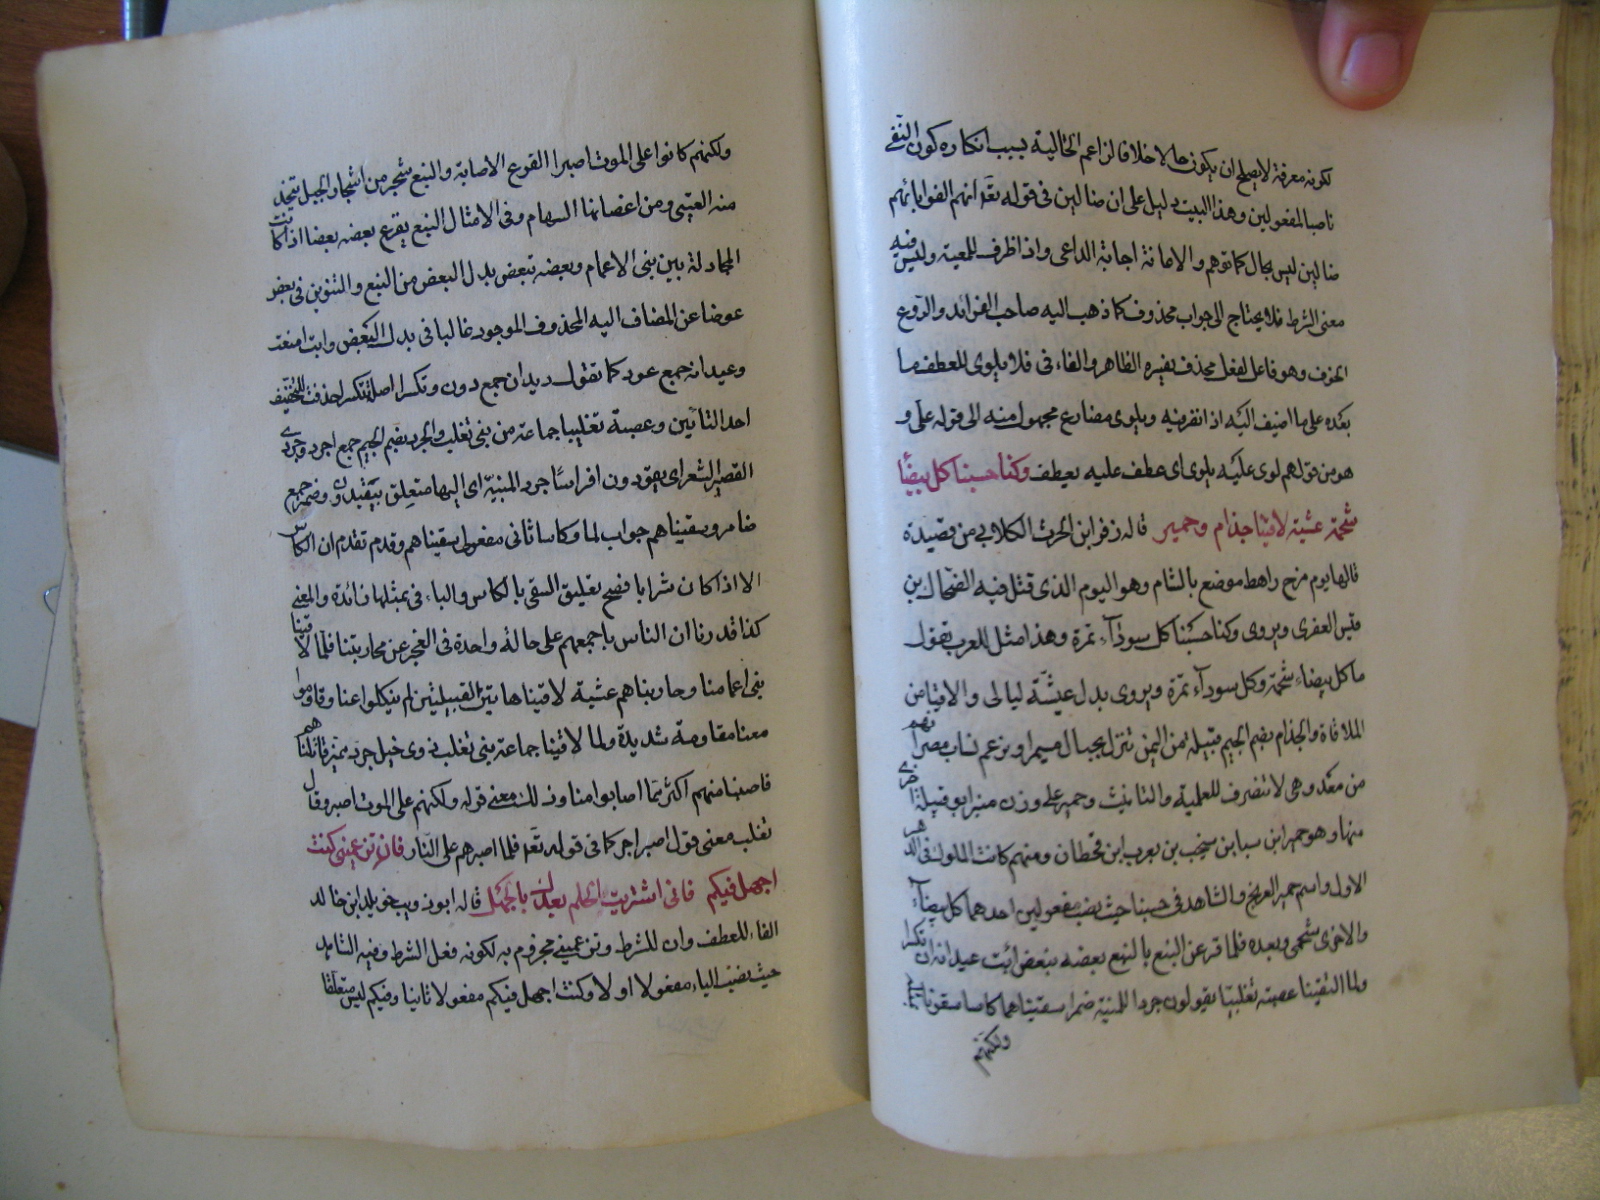 لكونه معرفة لا يصلح ان يكون حالا خلافا لزاعم الحالية بسبب انكاره كون الفى
ناصبا لمفعولين وهذا البيت دليل على ان ضالين فى قوله تعه انهم الفوا ابائهم
ضالين ليس بحال كما توهم والامانة اجابة الداعى واذا ظرف للمعية وليس فيه
معنى الشرط فلا يحتاج الى جواب محذوف كما ذهب اليه صاحب الفرائد والروع
الخوف وهو فاعل لفعل محذوف يفسره الظاهر والفاء فى فلا يلوى للعطف ما
بعده على ما اضيف اليه اذا نقر فيه ويلوى مضارع مجهول منه الى قوله على و
هو من قولهم لوى عليه يلوى اى عطف عليه يعطف وكنا حسبنا كل بيضا
شحمة عشية لاقينا جذام وحمير قاله زفر ابن الحرث الكلابى من قصيدة
قالها يوم مرج راهط موضع بالشام وهو اليوم الذى قتل فيه الضحاك بن
قيس الفهرى ويروى وكنا حسبنا كل سودآء تمرة وهذا مثل للعرب يقول
ما كل بيضاء شحمة وكل سودآء تمرة ويروى بدل عشية ليالى والاقينا من
الملاقاة والجذام بضم الجيم قبيلة من اليمن تنزل بجبال وزعم نساب مصر انهم
من معد وهى لا تنصرف للعلمية والتانيث وحمير على وزن منبر ابو قبيلة اخرى
منها وهو حمير ابن سبا بن يشجب بن يعرب ابن قحطان ومنهم كانت الملوك فى الدهر
الاول واسم حمير العرنج والشاهد فى حسبنا حيث نصب مفعولين احدهما كل بيضآء
والاخرى شحمى وبعده فلما قرعن النبع بالنبع بعضه ببعض ابت عيدانه ان تكسرا
ولما التقينا عصبة تغلبية يقولون جردا للمنية ضمرا سقيناهما كاسا سقونا بمثله
ولكنهم
ولكنهم كانوا على الموت اصبرا القوع الاصابة والنبع شجر من اشجار الجبل يتخذ
منه القسى ومن اغصانها السهام وفى الامثال النبع يقرع بعضه بعضا اذا كانت
المجادلة بين بنى الاعمام وبعضه ببعض بدل البعض من النبع والتنوين فى بعض
عوضا عن المضاف اليه المحذوف الموجود غالبا فى بدل البعض وابت امنعت
وعيدانه جمع عود كما تقول ديدان جمع دون وتكسرا اصله تتكسرا حذفت للتخفيف
احد التائين وعصبة تغلبيا جماعة من بنى تغلب والجرد بضم الجيم جمع اجرد وجرى
القصير الشعر اى يقودون افراسا جرد المنية اى اليها متعلق بيقيدون وضمر جمع
ضامر وسقيناهم جواب لما وكاسا ثانى مفعولى سقيناهم وقدم تقدم ان الكاس
الا اذا كان شرابا فصح تعليق السقى بالكاس والباء فى بمثلها زائدة والمعنى
كنا قدرنا ان الناس باجمعهم على حالة واحدة فى العجز عن محاربتنا فلما لاقينا
بنى اعمامنا وحاربناهم عشية لاقينا هاتين القبيلتين لم ينكلوا عنا وقاوموا
معنا مقاومة شديدة ولما لاقينا جماعة بنى تغلب ذوى خيل جرد قاتلناهم
فاصبنا منهم اكثر مما اصابوا منا وذلك معنى قوله ولكنهم على الموت اصبر وقال
تغلب معنى قول اصبر اجر كما فى قوله تعه فلما اصبرهم على النار فان تزعمينى كنت
اجهل فيكم فانى اشتريت الحلم بعدك بالجهل قاله ابو ذويب خويلد ابن خالد
الفاء للعطف وان للشرط وتزعمينى مجزوم به لكونه فعل الشرط وفيه الشاهد
حيث نصب الياء مفعولا اولا وكنت اجهل فيكم مفعولا ثانيا وفيكم ليس متعلقا